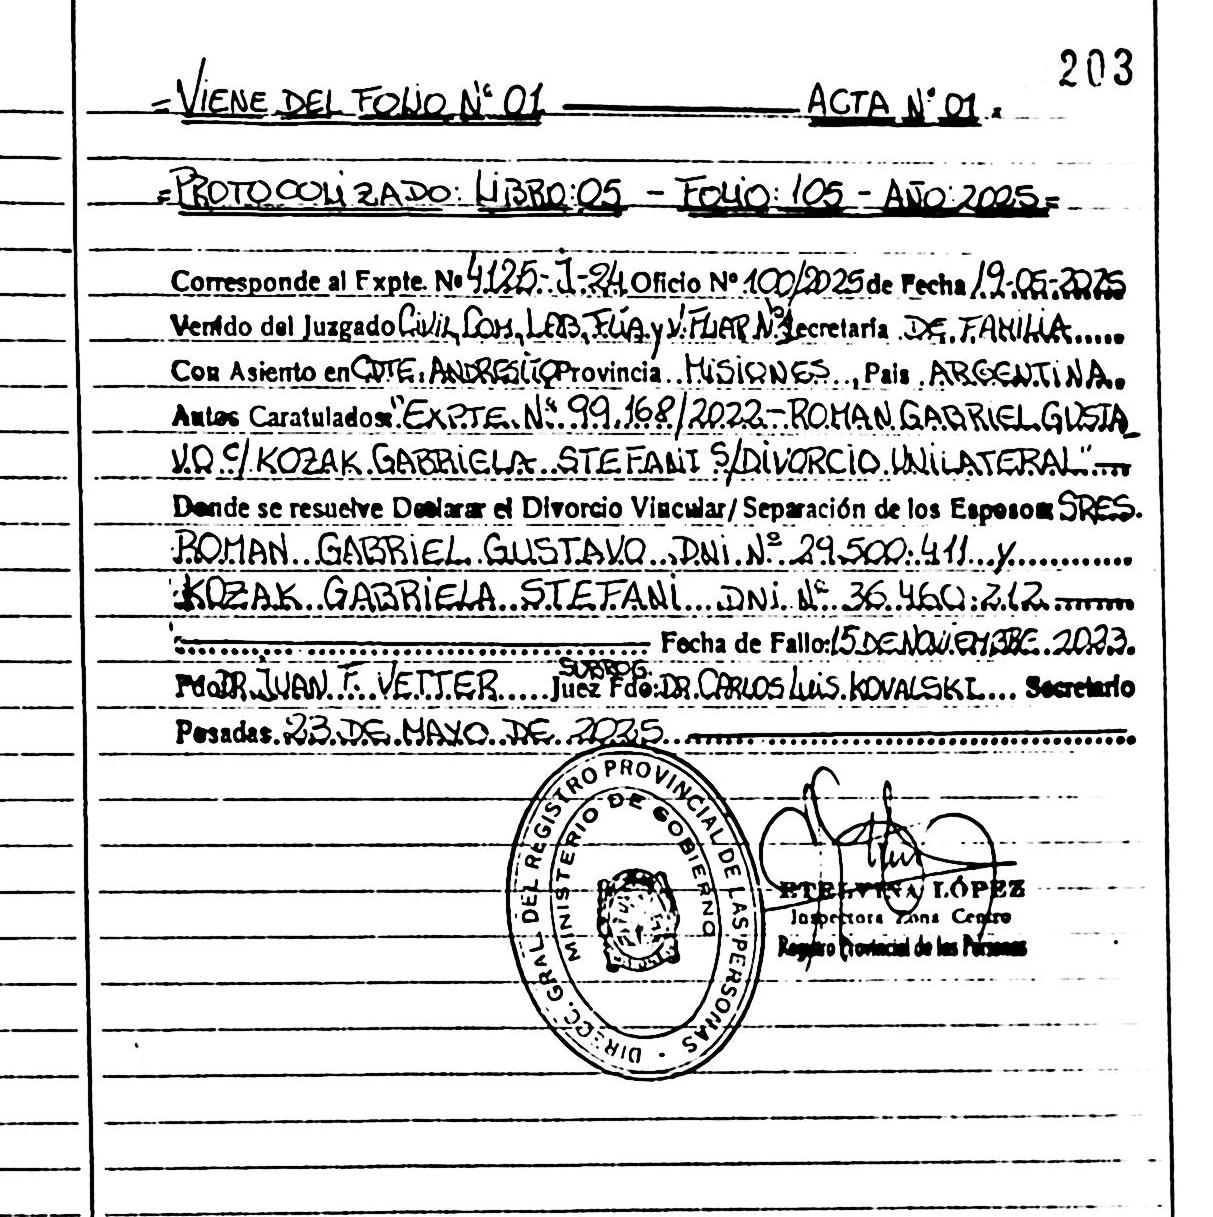 203
=VIENE DEL FOLIO N° 01 ACTA N° 01.
=PROTOCOLIZADO: LIBRO: 05 - FOLIO: 105 - AÑO: 2025=
Corresponde al Expte. Nº 4125-J-24 Oficio Nº 100/2025 de Fecha 19-05-2025
Venido del Juzgado Civil, Com, LAB, FLIA. y V. FLIAR Nº1 Secretaría DE FAMILIA.....
Con Asiento en CDTE. ANDRESITO Provincia MISIONES, Pais ARGENTINA.
Autos Caratulados: "EXPTE. N° 99.168/2022 - ROMAN GABRIEL GUSTA_
VO C/ KOZAK GABRIELA STEFANI S/DIVORCIO UNILATERAL"
Donde se resuelve Declarar el Divorcio Vincular/ Separación de los Esposos SRES.
ROMAN GABRIEL GUSTAVO DNI Nº 29.500.411 y
KOZAK GABRIELA STEFANI DNI N° 36.460.212
Fecha de Fallo: 15 DE NOVIEMBRE 2023.
SUBROG.
Fdo: DR. JUAN F. VETTER..... Juez Fdo: DR. CARLOS LUIS KOVALSKI.... Secretario
Posadas 23 DE MAYO DE 2025
DIRECC. GRAL. DEL REGISTRO PROVINCIAL DE LAS PERSONAS -
MINISTERIO DE GOBIERNO
ETELVINA LÓPEZ
Inspectora Zona Centro
Registro Provincial de las Personas